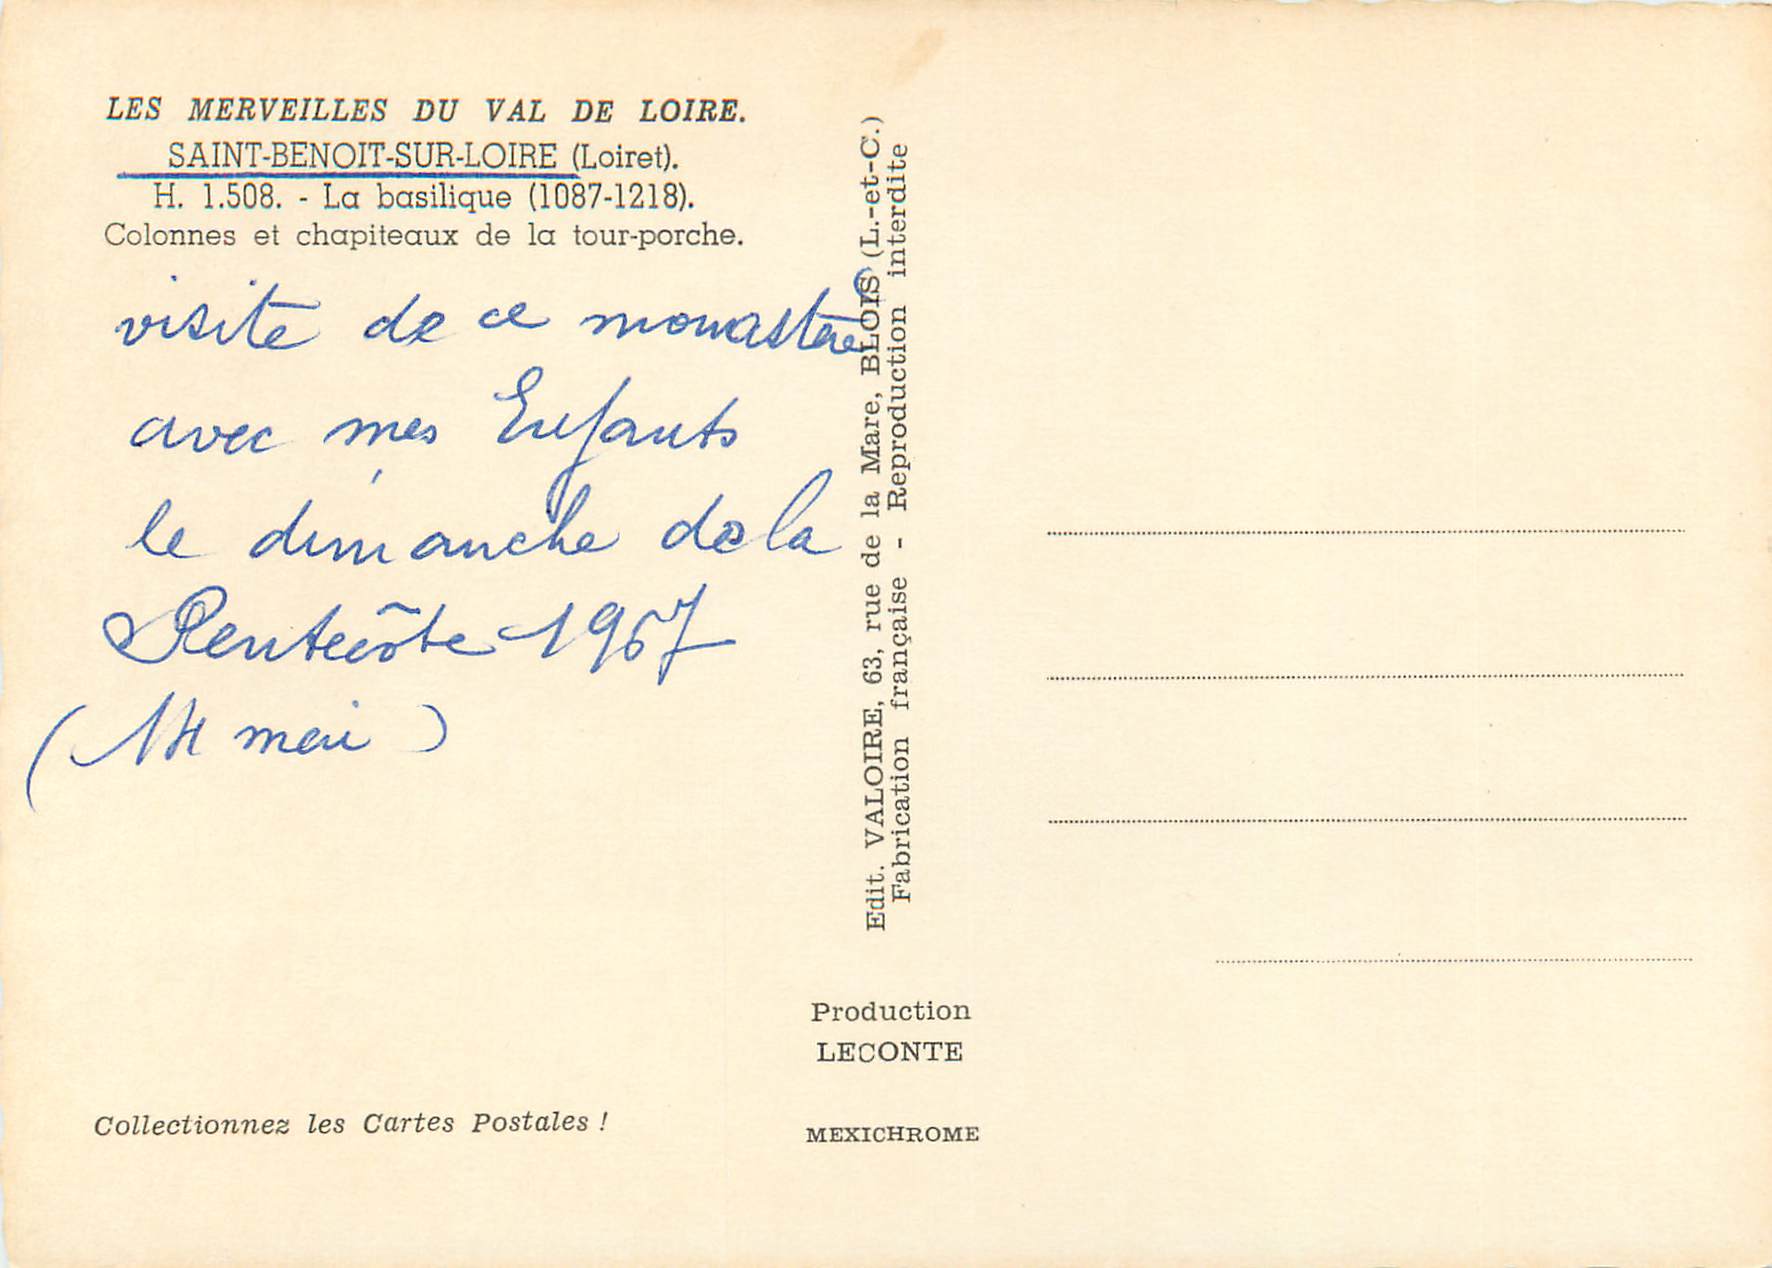 LES MERVEILLES DU VAL DE LOIRE.
SAINT-BENOIT-SUR-LOIRE (Loiret).
H. 1.508. - La basilique (1087-1218).
Colonnes et chapiteaux de la tour-porche.
visite de ce monastère
avec mes Enfants
le dimanche de la
Pentecôte 1967
(14 mai)
Collectionnez les Cartes Postales !
Edit. VALOIRE, 63, rue de la Mare, BLOIS (L.-et-C.)
Fabrication française - Reproduction interdite
Production
LECONTE
MEXICHROME